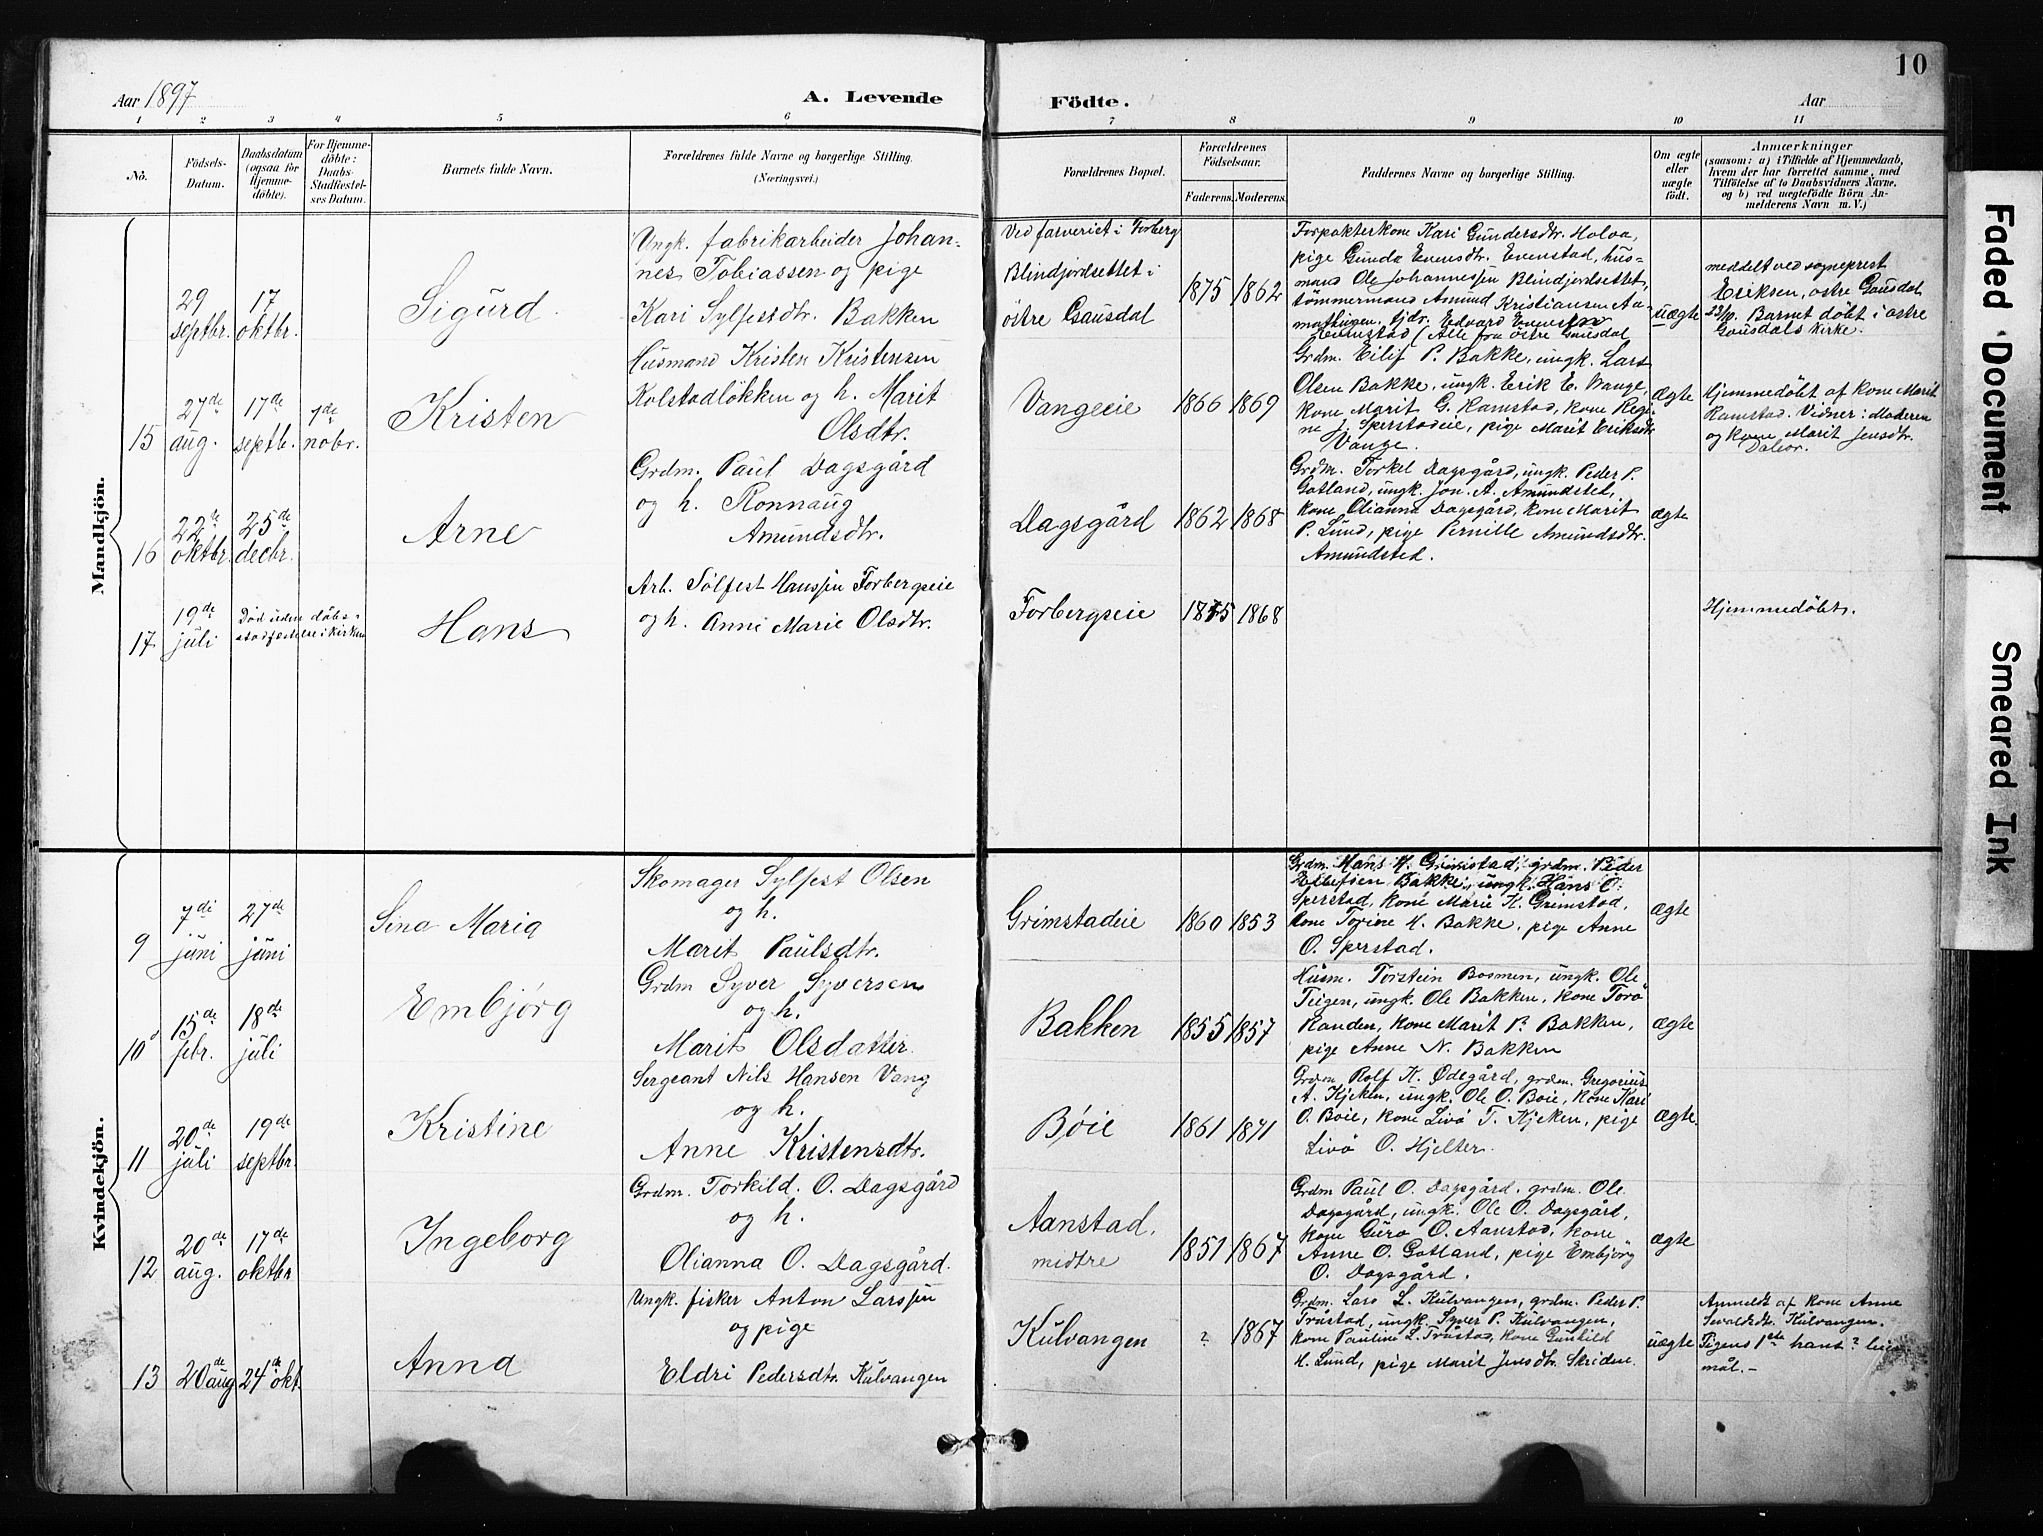 10
Aar 1897
A. Levende
Födte.
Aar
1 2 3 4 5 6 7 8 9 10 11
No.
Födsels-Datum.
Daabsdatum (ogsaa for Hjemmedöbte).
For Hjemmedöbte: Daabs-Stadfæstelses Datum.
Barnets fulde Navn.
Forældrenes fulde Navne og borgerlige Stilling.
(Næringsvei.)
Forældrenes Bopæl.
Forældrenes Födselsaar.
Faderens. Moderens.
Faddernes Navne og borgerlige Stilling.
Om ægte eller uægte födt.
Anmærkninger
(saasom: a) i Tilfælde af Hjemmedaab,
hvem der har forrettet samme, med
Tilföielse af to Daabsvidners Navne.
og b) ved uægtefödte Börn An-
melderens Navn m. V.)
Mandkjön.
29 septbr.
17 oktbr.
Sigurd
Ungk. fabrikarbeider Johan-
nes Tobiassen og pige
Kari Sylfestdtr. Bakken
Ved farveriet i Forberg
Blindjordsettet i
östre Gausdal
1875 1862
Forpakterkone Kari Gundersdtr. Holoa,
pige Gunda Evensdtr. Evenstad, hus-
mand Ole Johannessen Blindjordsettet,
tömmermand Amund Kristiansen Aa-
mothagen, tjdr. Edvard Evensen
Evenstad (Alle fra östre Gausdal
uægte
meddelt ved sogneprest
Eriksen, östre Gausdal
23/10. Barnet döbt i östre
Gausdals kirke.
15
27de aug.
17de septb.
7de nobr.
Kristen
Husmand Kristen Kristensen
Kolstadlökken og h. Marit
Olsdtr.
Vangeeie
1866 1869
Grdm. Eilif P. Bakke, ungk. Lars
Olsen Bakke, ungk. Erik E. Vange,
kone Marit G. Ramstad, kone Regi-
ne J. Sperstadeie, pige Marit Eriksdtr.
Vange.
ægte
Hjemmedöbt af kone Marit
Ramstad. Vidner: Moderen
og kone Marit Jensdtr.
16
22de oktbr.
25de decbr.
Arne
Grdm. Paul Dagsgård
og h. Ronnaug
Amundsdtr.
Dagsgård
1862 1868
Grdm. Torkel Dagsgård, ungk. Peder P.
Gotland, ungk. Jon. A. Amundsted,
kone Olianna Dagsgård, kone Marit
P. Lund, pige Pernille Amundsdtr.
Amundsted.
ægte
17
19de juli
Död uden döbs-
stadfestelse i kirken
Hans
Arb. Sölfest Hanssen Forbergseie
og h. Anne Marie Olsdtr.
Forbergseie
1875 1868
Hjemmedöbt.
Kvindekjön.
9
7di juni
27de juni
Sina Maria
Skomager Sylfest Olsen
og h.
Marit Paulsdtr.
Grimstadeie
1860 1853
Grdm. Hans H. Grimstad, grdm. Peder
Bakke, ungk. Hans O.
Sperstad, kone Marie K. Grimstad,
kone Torine H. Bakke, pige Anne
O. Sperstad.
ægte
10
15de febr.
18de juli
Embjörg
Grdm Syver Syversen
og h.
Marit Olsdatter
Bakken
1855 1857
Husm. Torstein Bosmen, ungk. Ole
Teigen, ungk. Ole Bakken, kone Torö
Randen, kone Marit P. Bakken,
pige Anne N. Bakken
ægte
11
20de juli
19de septbr.
Kristine
Sergeant Nils Hansen Vang
og h.
Anne Kristensdtr.
Böie
1861 1871
Grdm Rolf K. Ødegård, grdm. Gregorius
A. Kjeken, ungk. Ole O. Böie, kone Kari
O. Böie, kone Livö T. Kjeken, pige
Livö O. Hjelter.
ægte.
12
20de aug.
17de oktbr
Ingeborg
Grdm. Torkild. O. Dagsgård
og h.
Olianna O. Dagsgård.
Aanstad,
midtre
1851 1867
Grdm Paul O. Dagsgård, grdm. Ole
Dagsgård, ungk. Ole O. Dagsgård,
kone Guro O. Aanstad, kone
Anne O. Gotland, pige Embjörg
O. Dagsgård.
ægte
13
20de aug
24de okt.
Anna
Ungk. fisker Anton Larssen
og pige
Eldri Pedersdtr. Kulvangen
Kulvangen
? 1867
Grdm. Lars L. Kulvangen, grdm. Peder P.
Tråstad, ungk. Syver P. Kulvangen,
kone Pauline L. Tråstad, kone Gunhild
H. Lund, pige Marit Jensdtr. Skriden.
uægte
Anmeldt af kone Anne
Sevaldsdtr. Kulvangen.
Pigens 1ste hans ? leier-
mål.-
Faded Document
Smeared Ink